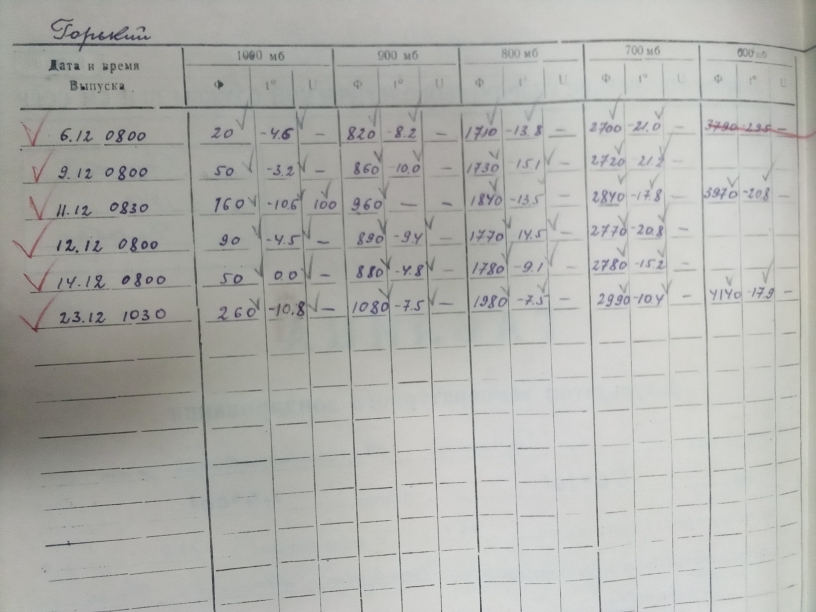 Горький
Дата и время Выпуска 1000 мб 900 мб 800 мб 700 мб 600 мб
Ф t° U Ф t° U Ф t° U Ф t° U Ф t° U
6.12 0800 20 -4.6 — 820 -8.2 — 1710 -13.8 — 2700 -21.0 — 3790 -29.5 —
9.12 0800 50 -3.2 — 860 -10.0 — 1730 -15.1 — 2720 -21.2 —
11.12 0830 160 -10.6 100 960 — — 1840 -13.5 — 2840 -17.8 — 3970 -20.8 —
12.12 0800 90 -4.5 — 890 -9.4 — 1770 -14.5 — 2770 -20.8 — —
14.12 0800 50 0.0 — 880 -4.8 — 1780 -9.1 — 2780 -15.2 —
23.12 1030 260 -10.8 — 1080 -7.5 — 1980 -7.5 — 2990 -10.4 — 4140 -17.9 —